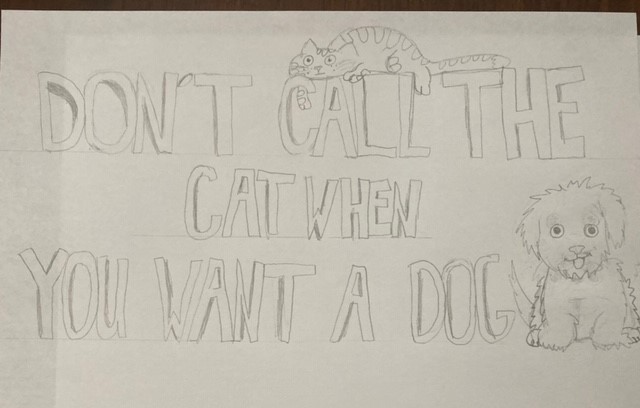 DON'T CALL THE
CAT WHEN
YOU WANT A DOG